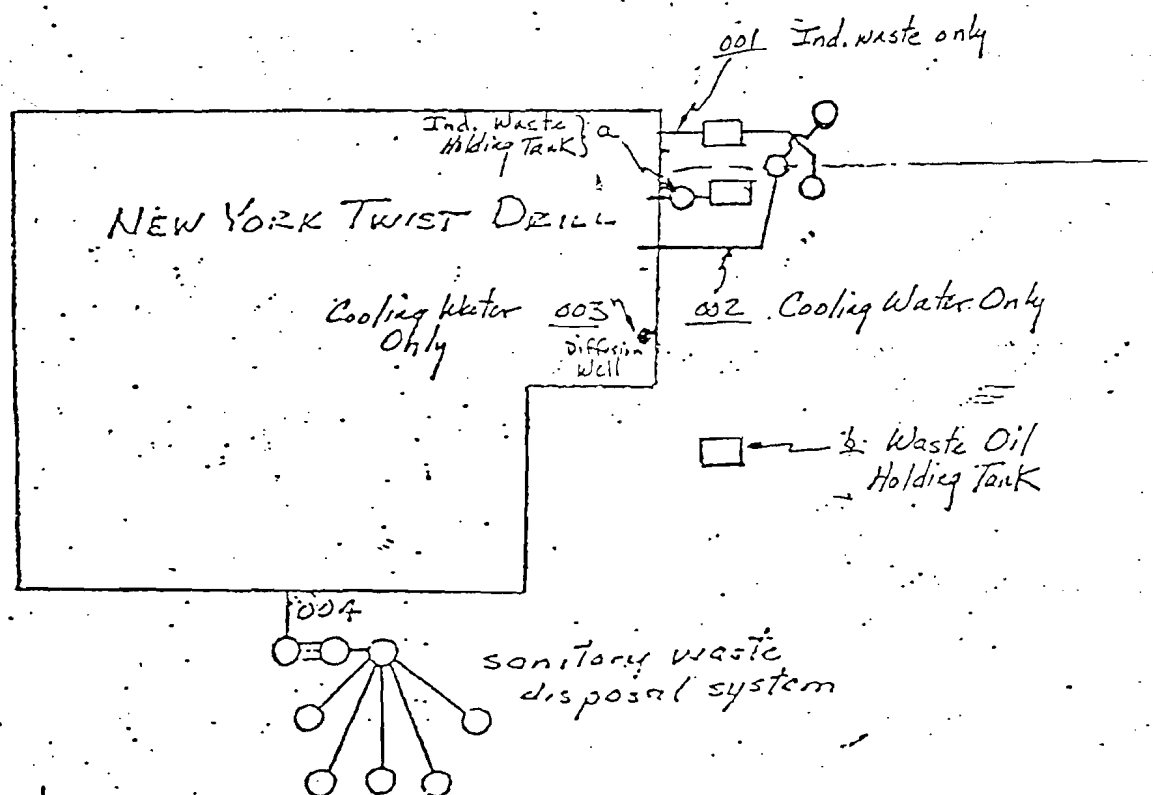 001 Ind. waste only
Ind. Waste
Holding Tank } a
NEW YORK TWIST DRILL
Cooling Water
Only
003
Diffusion
Well
002 Cooling Water Only
b. Waste Oil
Holding Tank
004
sanitary waste
disposal system